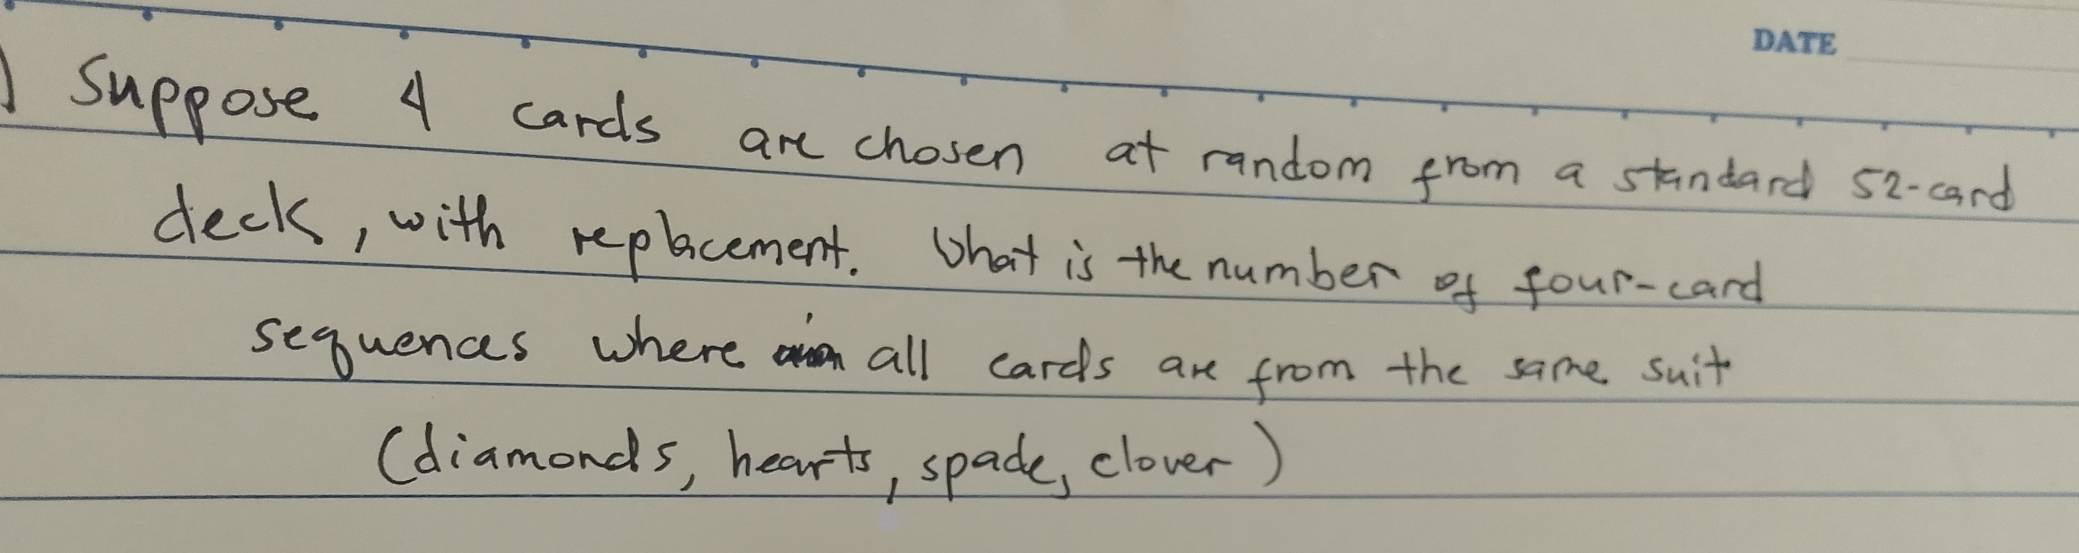 DATE
) Suppose 4 cards are chosen at random from a standard 52-card
deck, with replacement. What is the number of four-card
sequences where all cards are from the same suit
(diamonds, hearts, spade, clover)